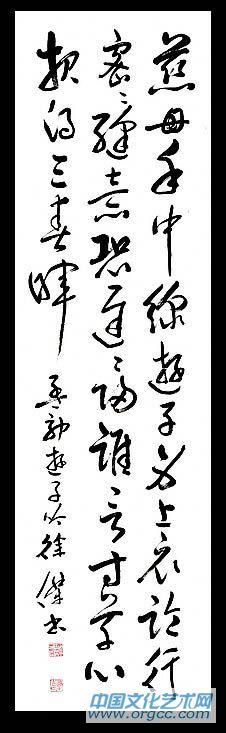 慈母手中線遊子身上衣臨行
密密縫意恐遲遲歸誰言寸草心
報得三春暉
孟郊遊子吟徐傑书
中国文化艺术网
www.orgcc.com